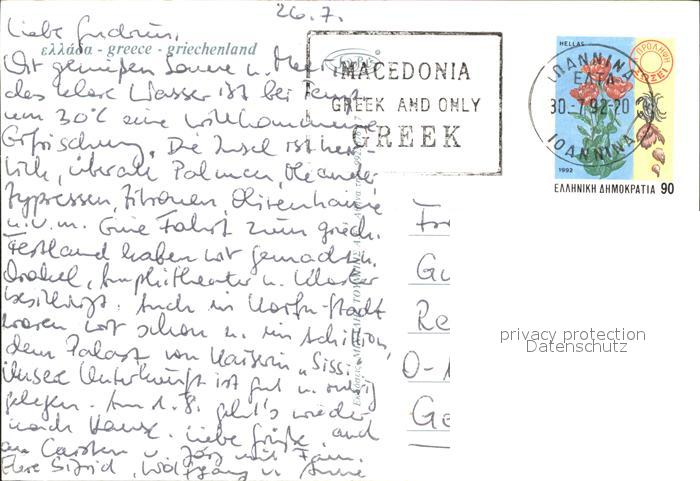 26.7.
Liebe Gudrun,
ελλάδα - greece - griechenland
Wir genießen Sonne u. Meer
das klare Wasser ist bei Temp.
um 30°C eine willkommene
Erfrischung. Die Insel ist herr-
lich, überall Palmen, Oleander
Zypressen, Zitronen, Olivenhaine
u.v.m. Eine Fahrt zum griech.
Festland haben wir gemacht u.
Orakel, Amphitheater u. Kloster
besichtigt. Auch in Korfu-Stadt
waren wir schon u. im Achilleion,
dem Palast von Kaiserin "Sissi".
Unsere Unterkunft ist gut u. ruhig
gelegen. Am 1.8. geht's wieder
nach Hause. Liebe Grüße, auch
an Carsten u. Jörg mit Fam.
Eure Sigrid, Wolfgang u. Anne
MACEDONIA
GREEK AND ONLY
GREEK
HELLAS
ΠΡΟΛΗΨΗ
ΣΩΖΕΙ
ΙΩΑΝΝΙΝΑ
ΕΛΤΑ
30.-7.92-20
ΙΩΑΝΝΙΝΑ
1992
ΕΛΛΗΝΙΚΗ ΔΗΜΟΚΡΑΤΙΑ 90
Fr
Gu
Re
O-1
Ge
privacy protection
Datenschutz